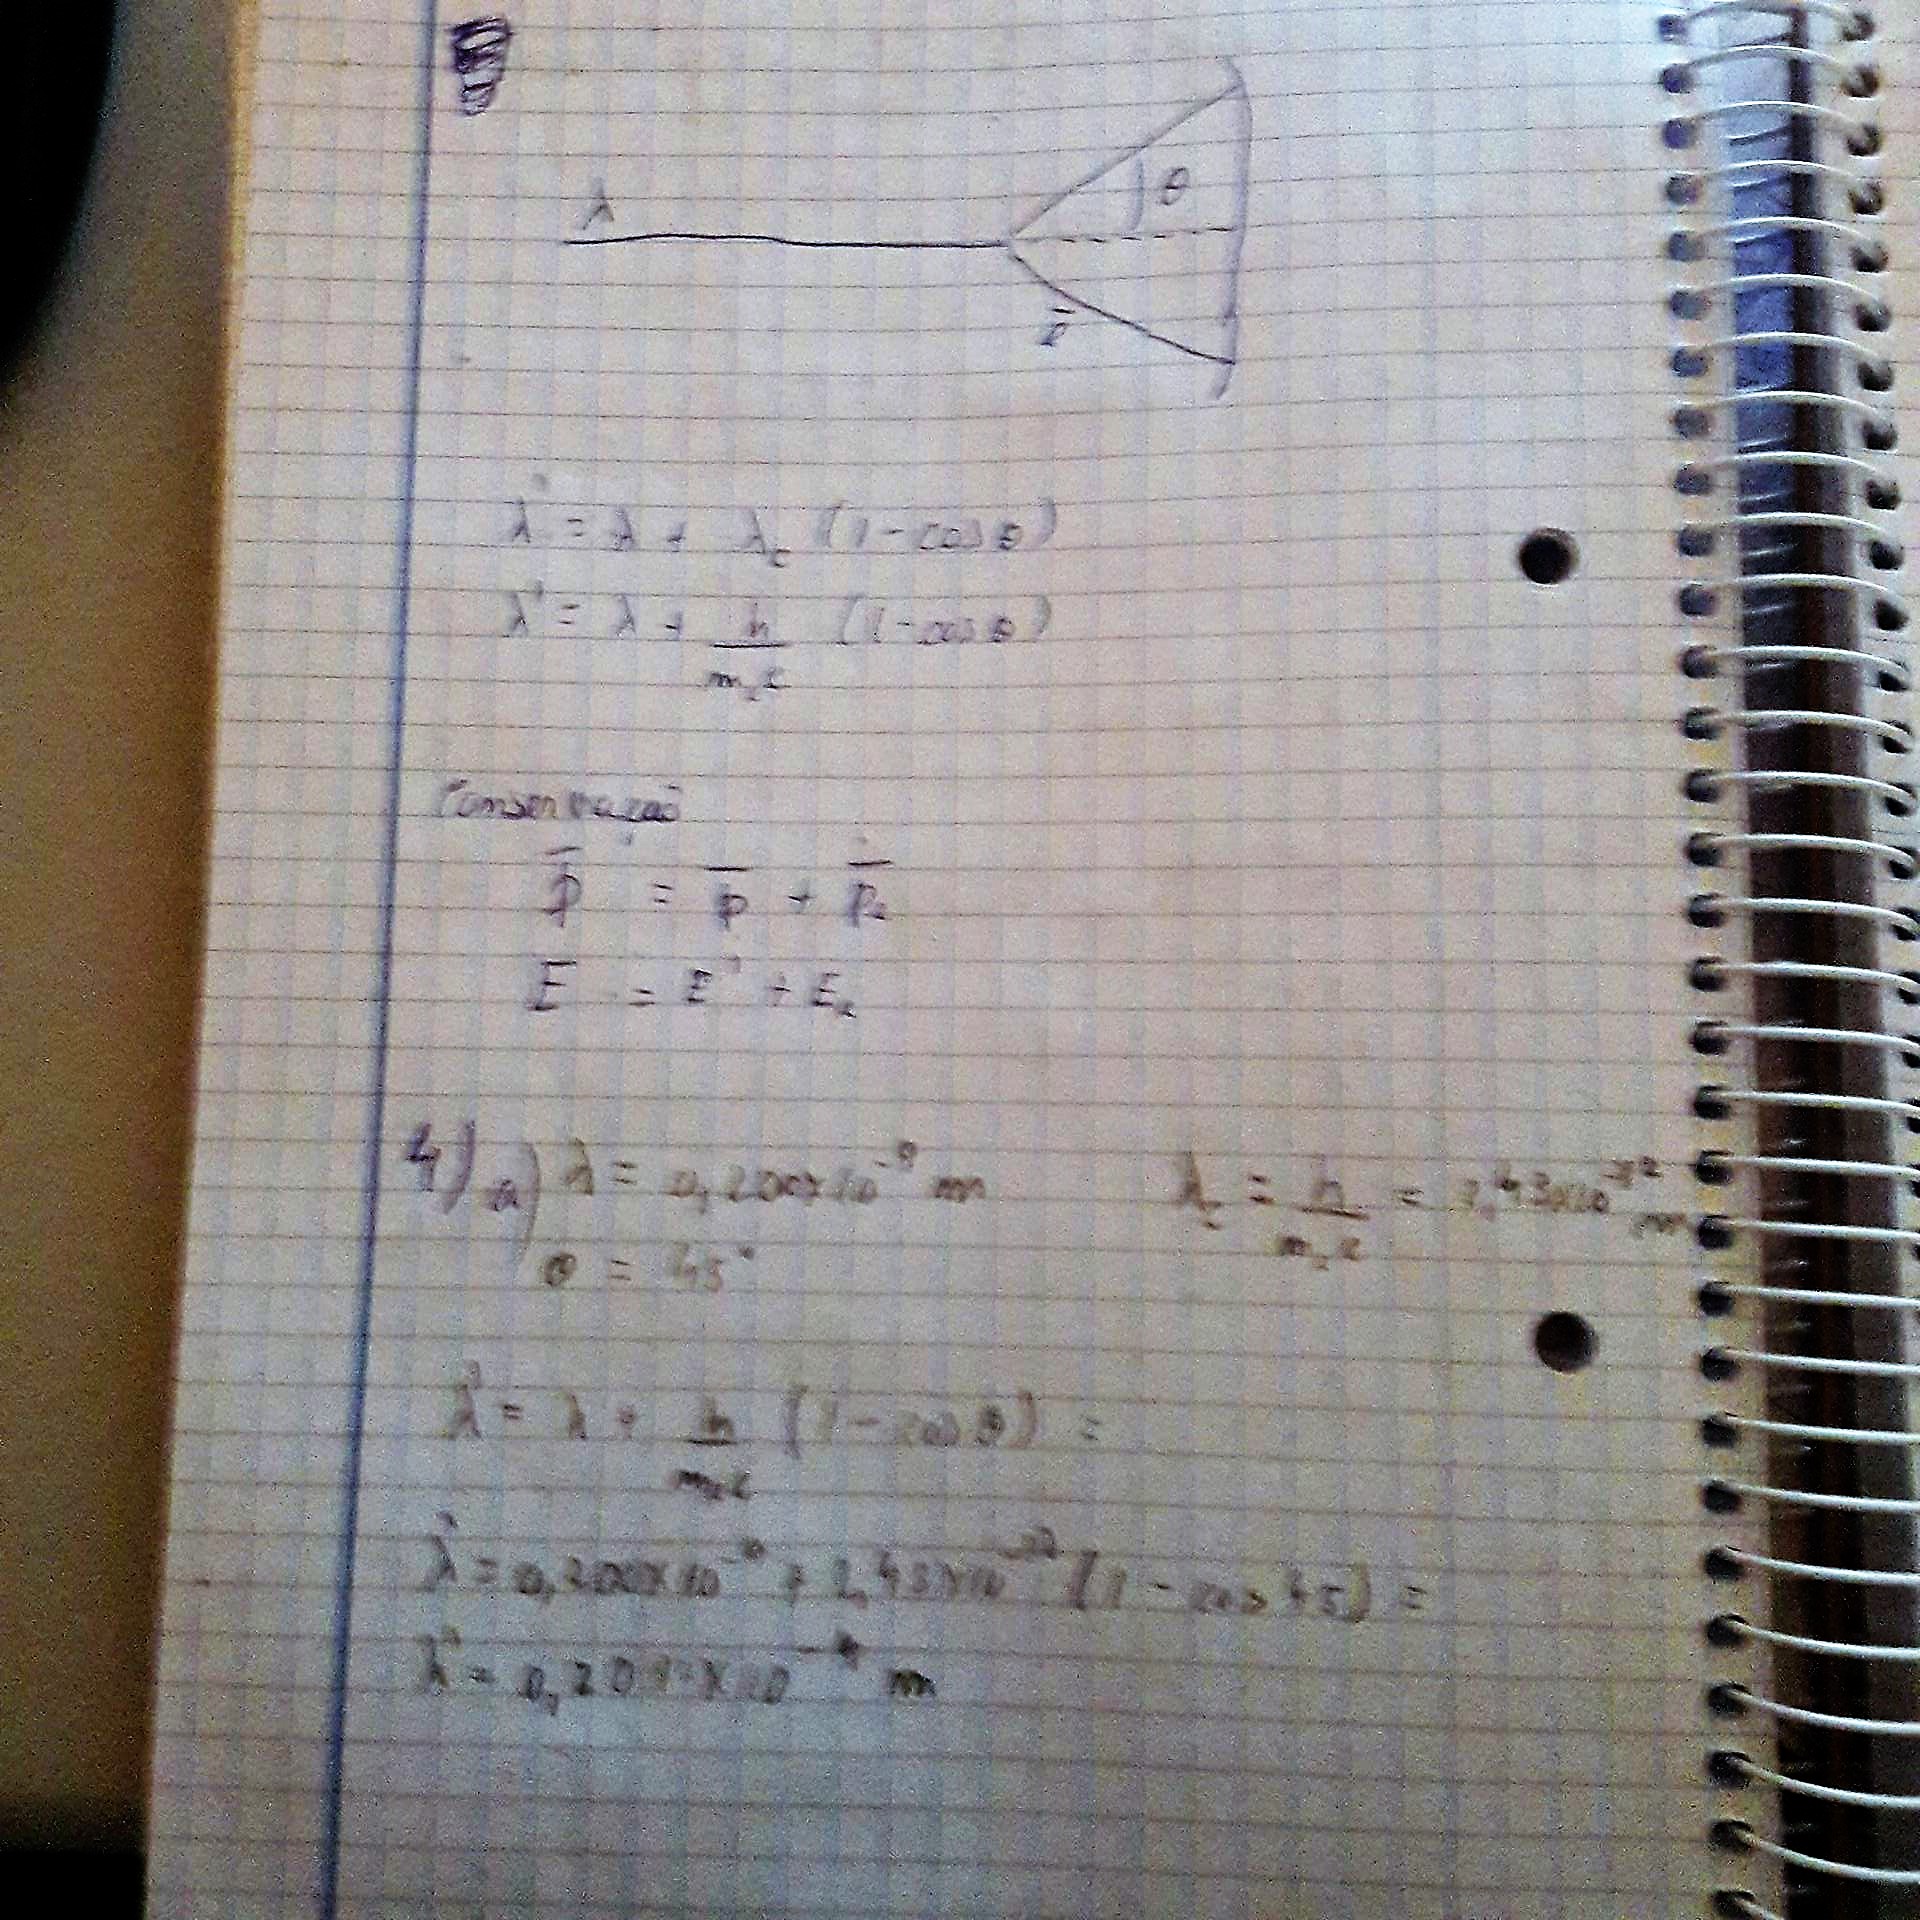 λ
θ
e⁻
λ' = λ + λc (1 - cos θ)
λ' = λ + h/mec (1 - cos θ)
Conservação
p̄ = p̄ + p̄e
E = E' + Ee
4) a) λ = 0,200x10⁻⁹ m λc = h/mec = 2,43x10⁻¹² m
θ = 45°
λ' = λ + h/mec (1 - cos θ) =
λ' = 0,200x10⁻⁹ + 2,43x10⁻¹² (1 - cos 45) =
λ' = m